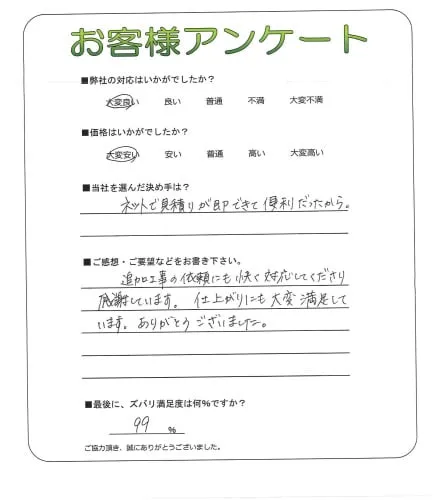 お客様アンケート
■弊社の対応はいかがでしたか?
大変良い 良い 普通 不満 大変不満
■価格はいかがでしたか?
大変安い 安い 普通 高い 大変高い
■当社を選んだ決め手は?
ネットで見積りが即できて便利だったから。
■ご感想・ご要望などをお書き下さい。
追加工事の依頼にも快く対応してくださり
感謝しています。 仕上がりにも大変満足して
います。ありがとうございました。
■最後に、ズバリ満足度は何%ですか?
99 %
ご協力頂き、誠にありがとうございました。